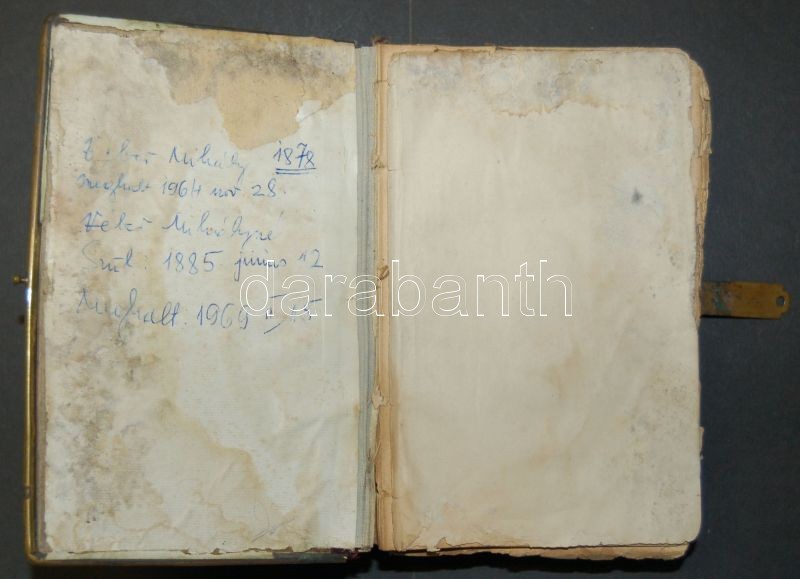 Mihály 1878
meghalt 1964 nov. 28
Mihályné
Szül: 1885 junius 12
Meghalt. 1969
darabanth